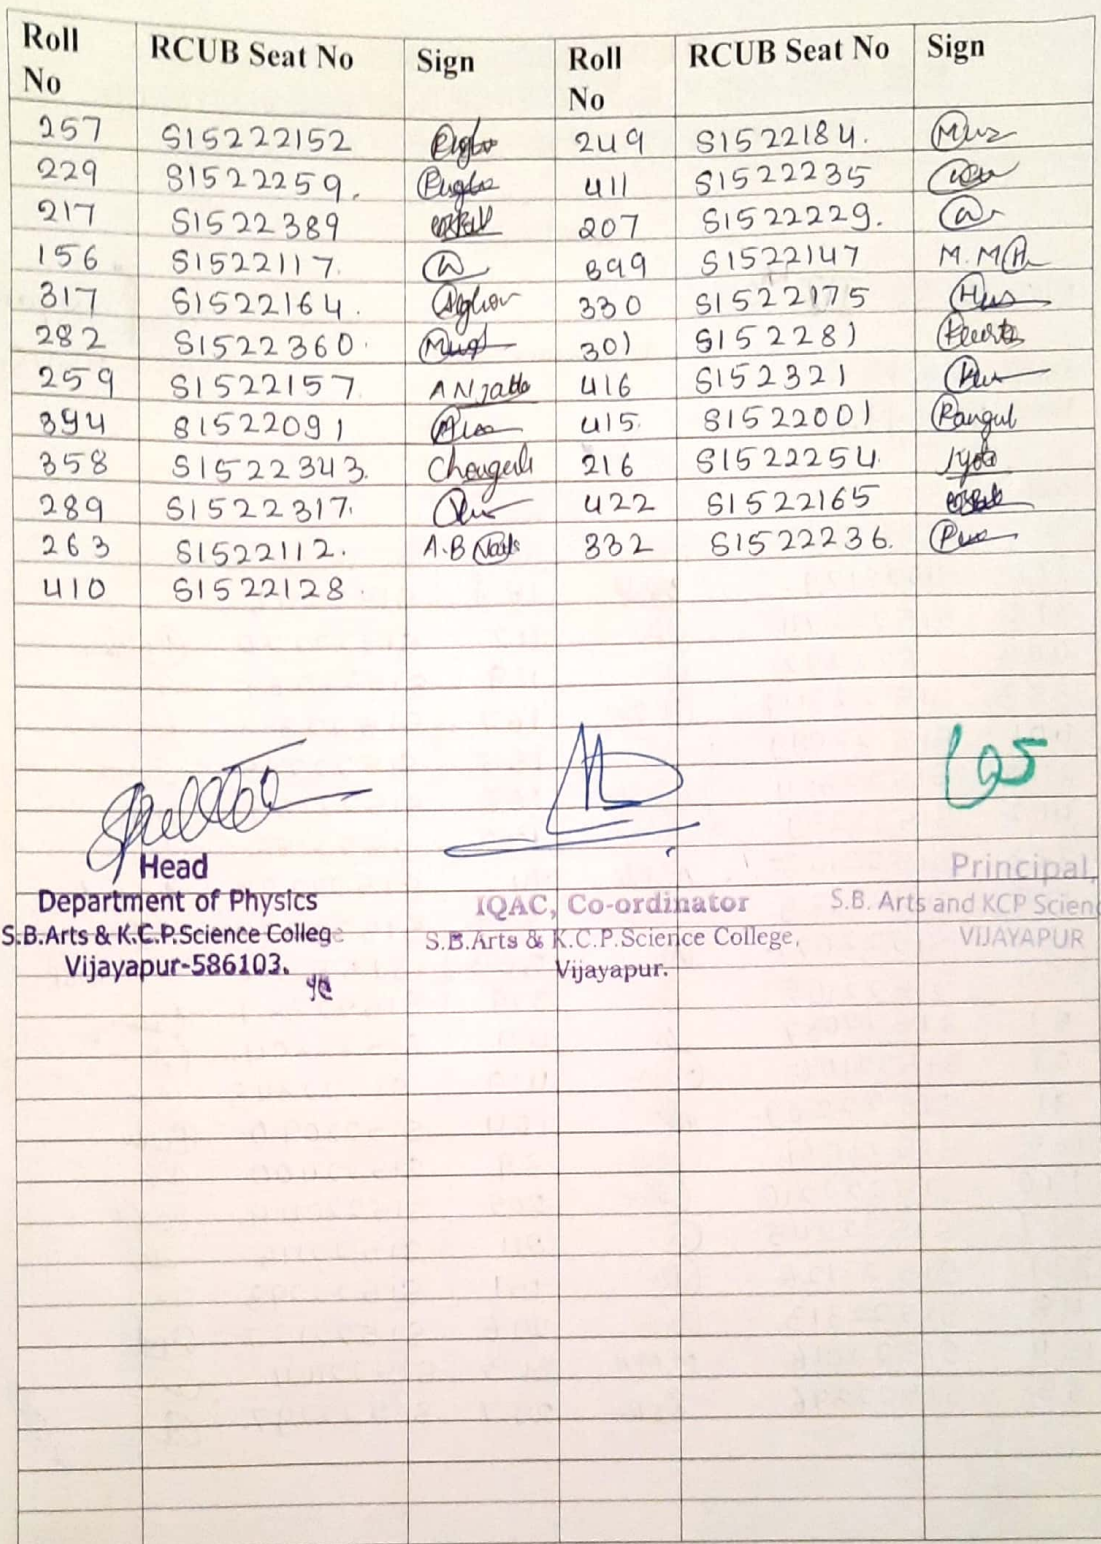 Roll No RCUB Seat No Sign Roll No RCUB Seat No Sign
257 S15222152 249 S1522184.
229 S1522259. 411 S1522235
217 S1522389 207 S1522229.
156 S1522117. 399 S1522147 M.M
317 S1522164. 330 S1522175
282 S1522360. 301 S152281
259 S1522157 416 S152321
394 S1522091 415. S1522001 Rangul
358 S1522343. 216 S1522254.
289 S1522317. 422 S1522165
263 S1522112. A.B 332 S1522236.
410 S1522128.
Head
Department of Physics
S.B.Arts & K.C.P.Science College
Vijayapur-586103.
IQAC, Co-ordinator
S.B.Arts & K.C.P.Science College,
Vijayapur.
Principal,
S.B. Arts and KCP Scienc
VIJAYAPUR